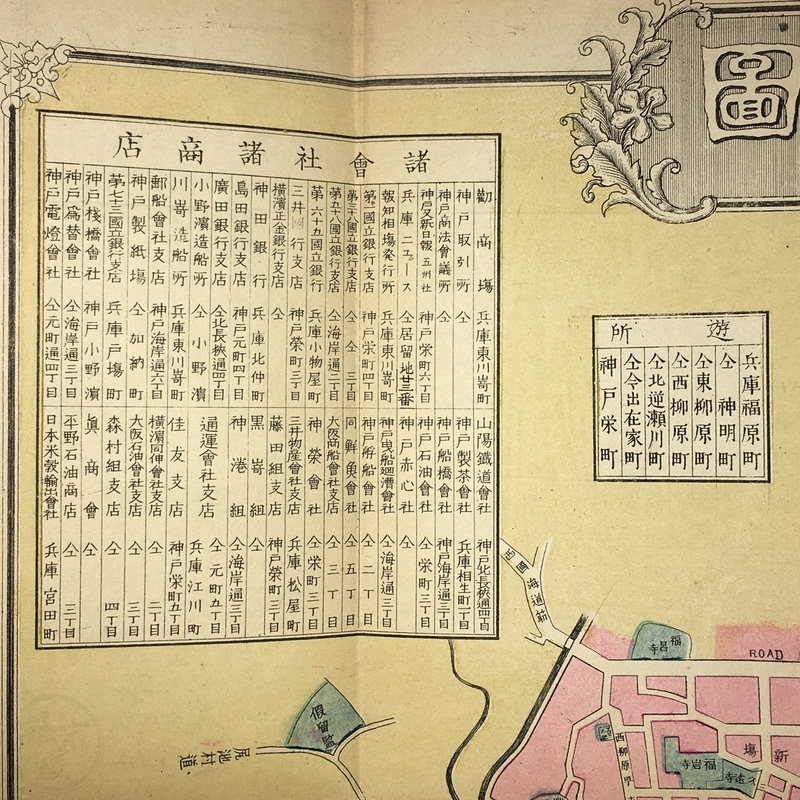 圖
諸會社諸商店
勸商塲 兵庫東川嵜町
神戸取引所 仝
神戸商法會議所 仝
神戸又新日報 五州社 神戸栄町六丁目
兵庫ニュース 仝居留地廿三番
報知相塲発行所 兵庫東川嵜町
第一國立銀行支店 神戸栄町四丁目
第三十八國立銀行支店 仝 仝 三丁目
第五十八國立銀行支店 仝海岸通二丁目
第六十五國立銀行 兵庫小物屋町
三井銀行支店 神戸榮町三丁目
横濱正金銀行支店 仝
神田銀行 兵庫北仲町
島田銀行支店 神戸元町四丁目
廣田銀行支店 仝北長狹通四丁目
小野濱造船所 仝 小野濱
川嵜造船所 兵庫東川嵜町
郵船會社支店 神戸海岸通六丁目
神戸製紙塲 仝 加納町
第七十三國立銀行支店 兵庫戸塲町
神戸棧橋會社 神戸小野濱
神戸為替會社 仝海岸通三丁目
神戸電燈會社 仝元町通四丁目
山陽鐵道會社 神戸北長狹通四丁目
神戸製茶會社 兵庫相生町一丁目
神戸船橋會社 神戸海岸通三丁目
神戸石油會社 仝栄町三丁目
神戸赤心社 仝
神戸曳船廻漕會社 仝海岸通三丁目
神戸艀船會社 仝 二丁目
同鮮魚會社 仝 五丁目
大阪商船會社支店 仝 三丁目
神榮會社 仝栄町三丁目
三井物産會社支店 兵庫松屋町
藤田組支店 神戸榮町三丁目
黒嵜組 仝
神港組 仝海岸通三丁目
通運會社支店 仝元町五丁目
兵庫江川町
佳友支店 神戸栄町五丁目
横濱同伸會社支店 仝 二丁目
大阪石油會社支店 仝 三丁目
森村組支店 仝 四丁目
眞商會 仝
平野石油商店 仝 三丁目
日本米穀輸出會社 兵庫宮田町
遊所
兵庫福原町
仝神明町
仝東柳原町
仝西柳原町
仝北逆瀬川町
仝今出在家町
神戸栄町
西國海道筋
福昌寺
ROAD
假留監
尻池村道
西柳原町
福岩寺
久遠寺
新塲